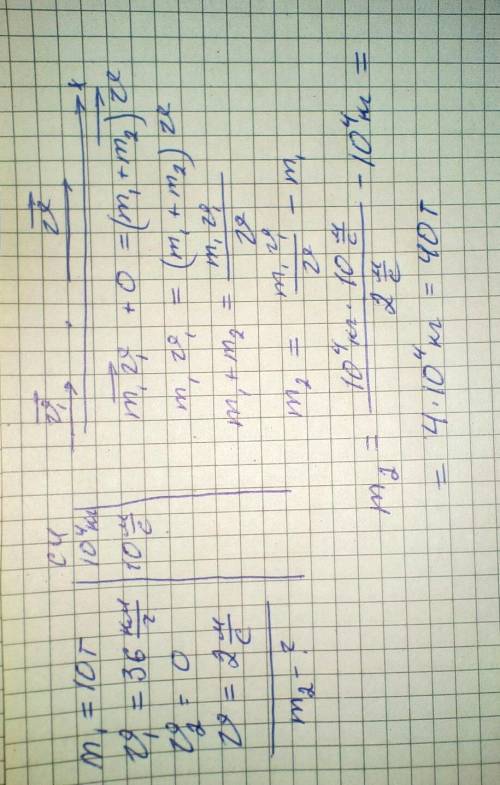 m₁ = 10т
ϑ₁ = 36 км/г
ϑ₂ = 0
ϑ = 2 м/с
m₂ - ?
СИ
10⁴ кг
10 м/с
ϑ₁ ϑ x
m₁ϑ₁ + 0 = (m₁ + m₂) ϑ
m₁ ϑ₁ = (m₁ + m₂) ϑ
m₁ + m₂ = m₁ ϑ₁ / ϑ
m₂ = m₁ ϑ₁ / ϑ - m₁
m₂ = 10⁴ кг · 10 м/с / 2 м/с - 10⁴ кг =
= 4 · 10⁴ кг = 40т